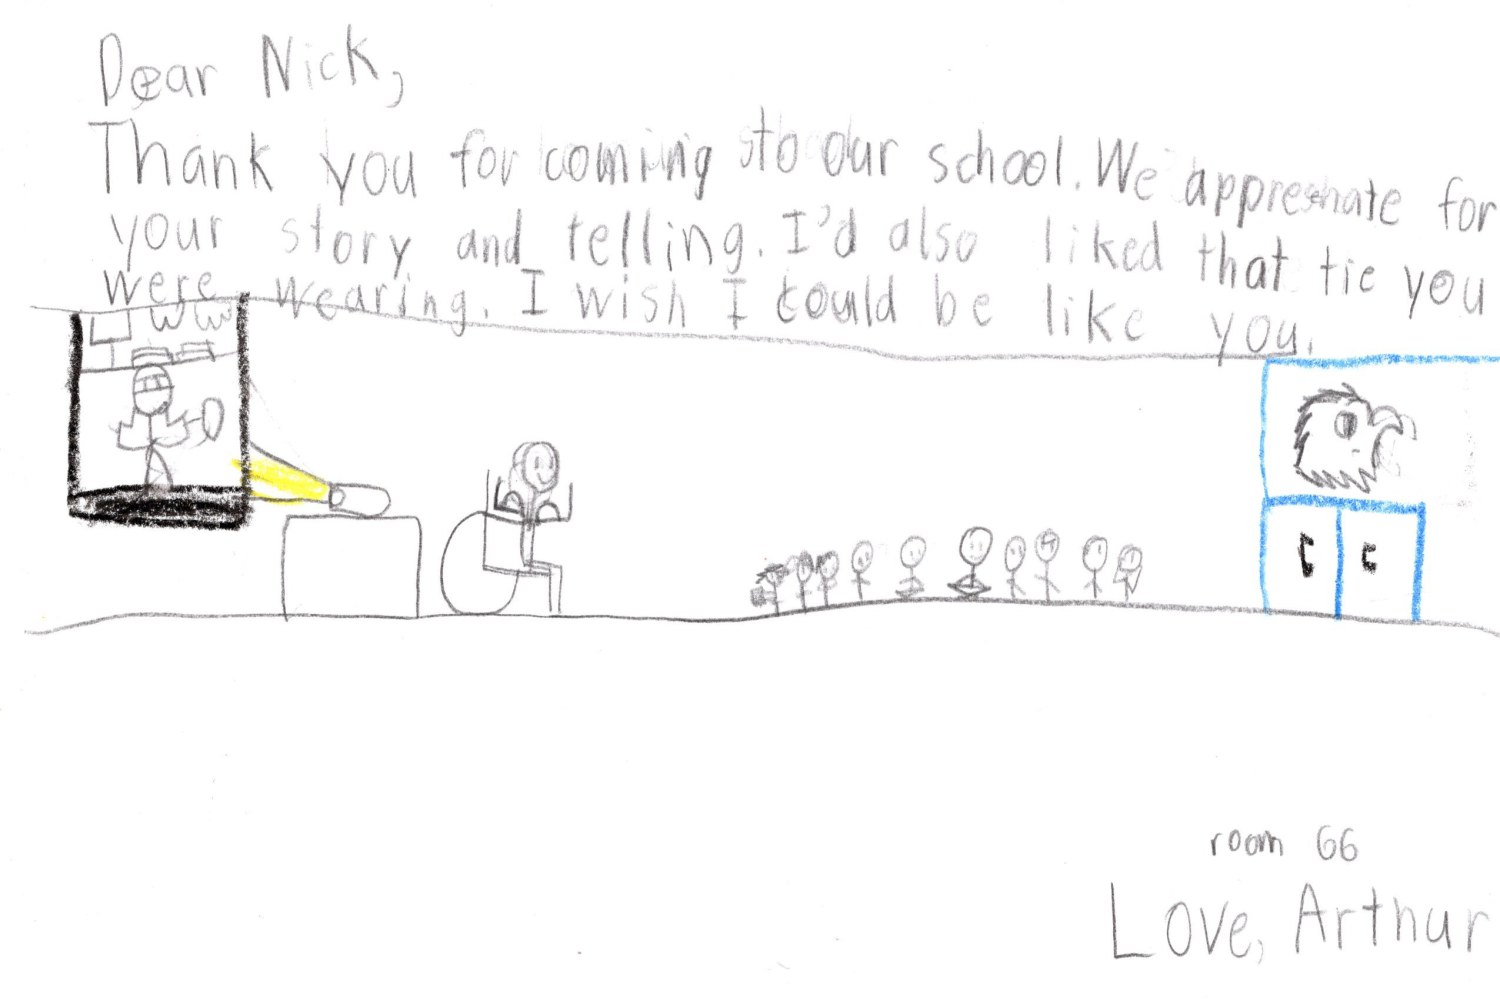 Dear Nick,
Thank you for coming to our school. We appreshate for
your story and telling. I'd also liked that tie you
were wearing. I wish I could be like you.
room 66
Love, Arthur